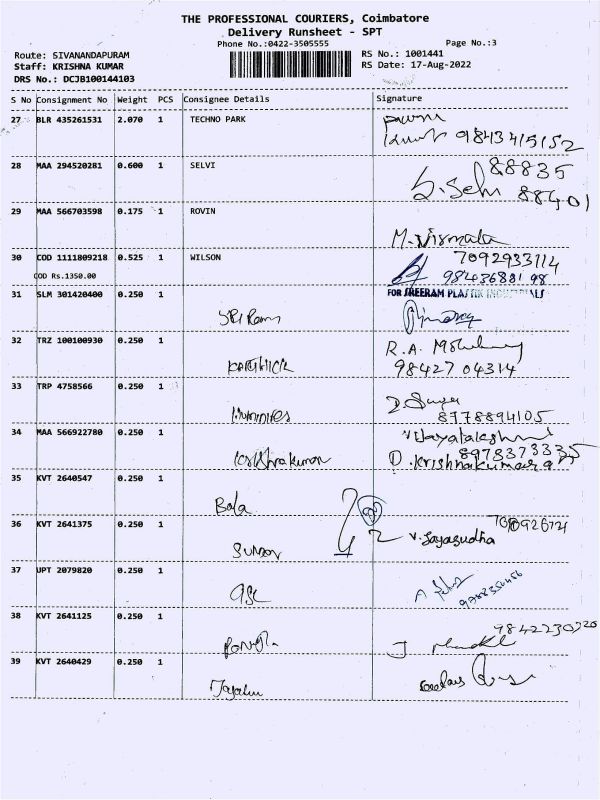 THE PROFESSIONAL COURIERS, Coimbatore
Delivery Runsheet - SPT
Phone No.:0422-3505555
Page No.:3
Route: SIVANANDAPURAM
RS No.: 1001441
Staff: KRISHNA KUMAR
RS Date: 17-Aug-2022
DRS No.: DCJB100144103
S No Consignment No Weight PCS Consignee Details Signature
27 BLR 435261531 2.070 1 TECHNO PARK
9843415152
28 MAA 294520281 0.600 1 SELVI
88835
S. Selvi 88401
29 MAA 566703598 0.175 1 ROVIN
M. Nirmala
30 COD 1111809218 0.525 1 WILSON 7092933114
COD Rs.1350.00 9843688198
31 SLM 301420400 0.250 1 FOR SREERAM PLASTIK INDUSTRIALS
Sri Ram
32 TRZ 100100930 0.250 1 R.A.
Karthick 98427 04314
33 TRP 4758566 0.250 1
8778894105
34 MAA 566922780 0.250 1 Vijayalakshmi
8978373335
Krishnakumar D. Krishnakumar
35 KVT 2640547 0.250 1
Bala
36 KVT 2641375 0.250 1
V. Jayasudha
37 UPT 2079820 0.250 1
38 KVT 2641125 0.250 1
9842230320
J
39 KVT 2640429 0.250 1